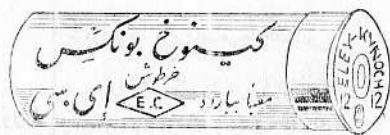 كينوخ بونكس
خرطوش
معبأ ببارود E.C. إي. سي
ELEY-KYNOCH
12 12